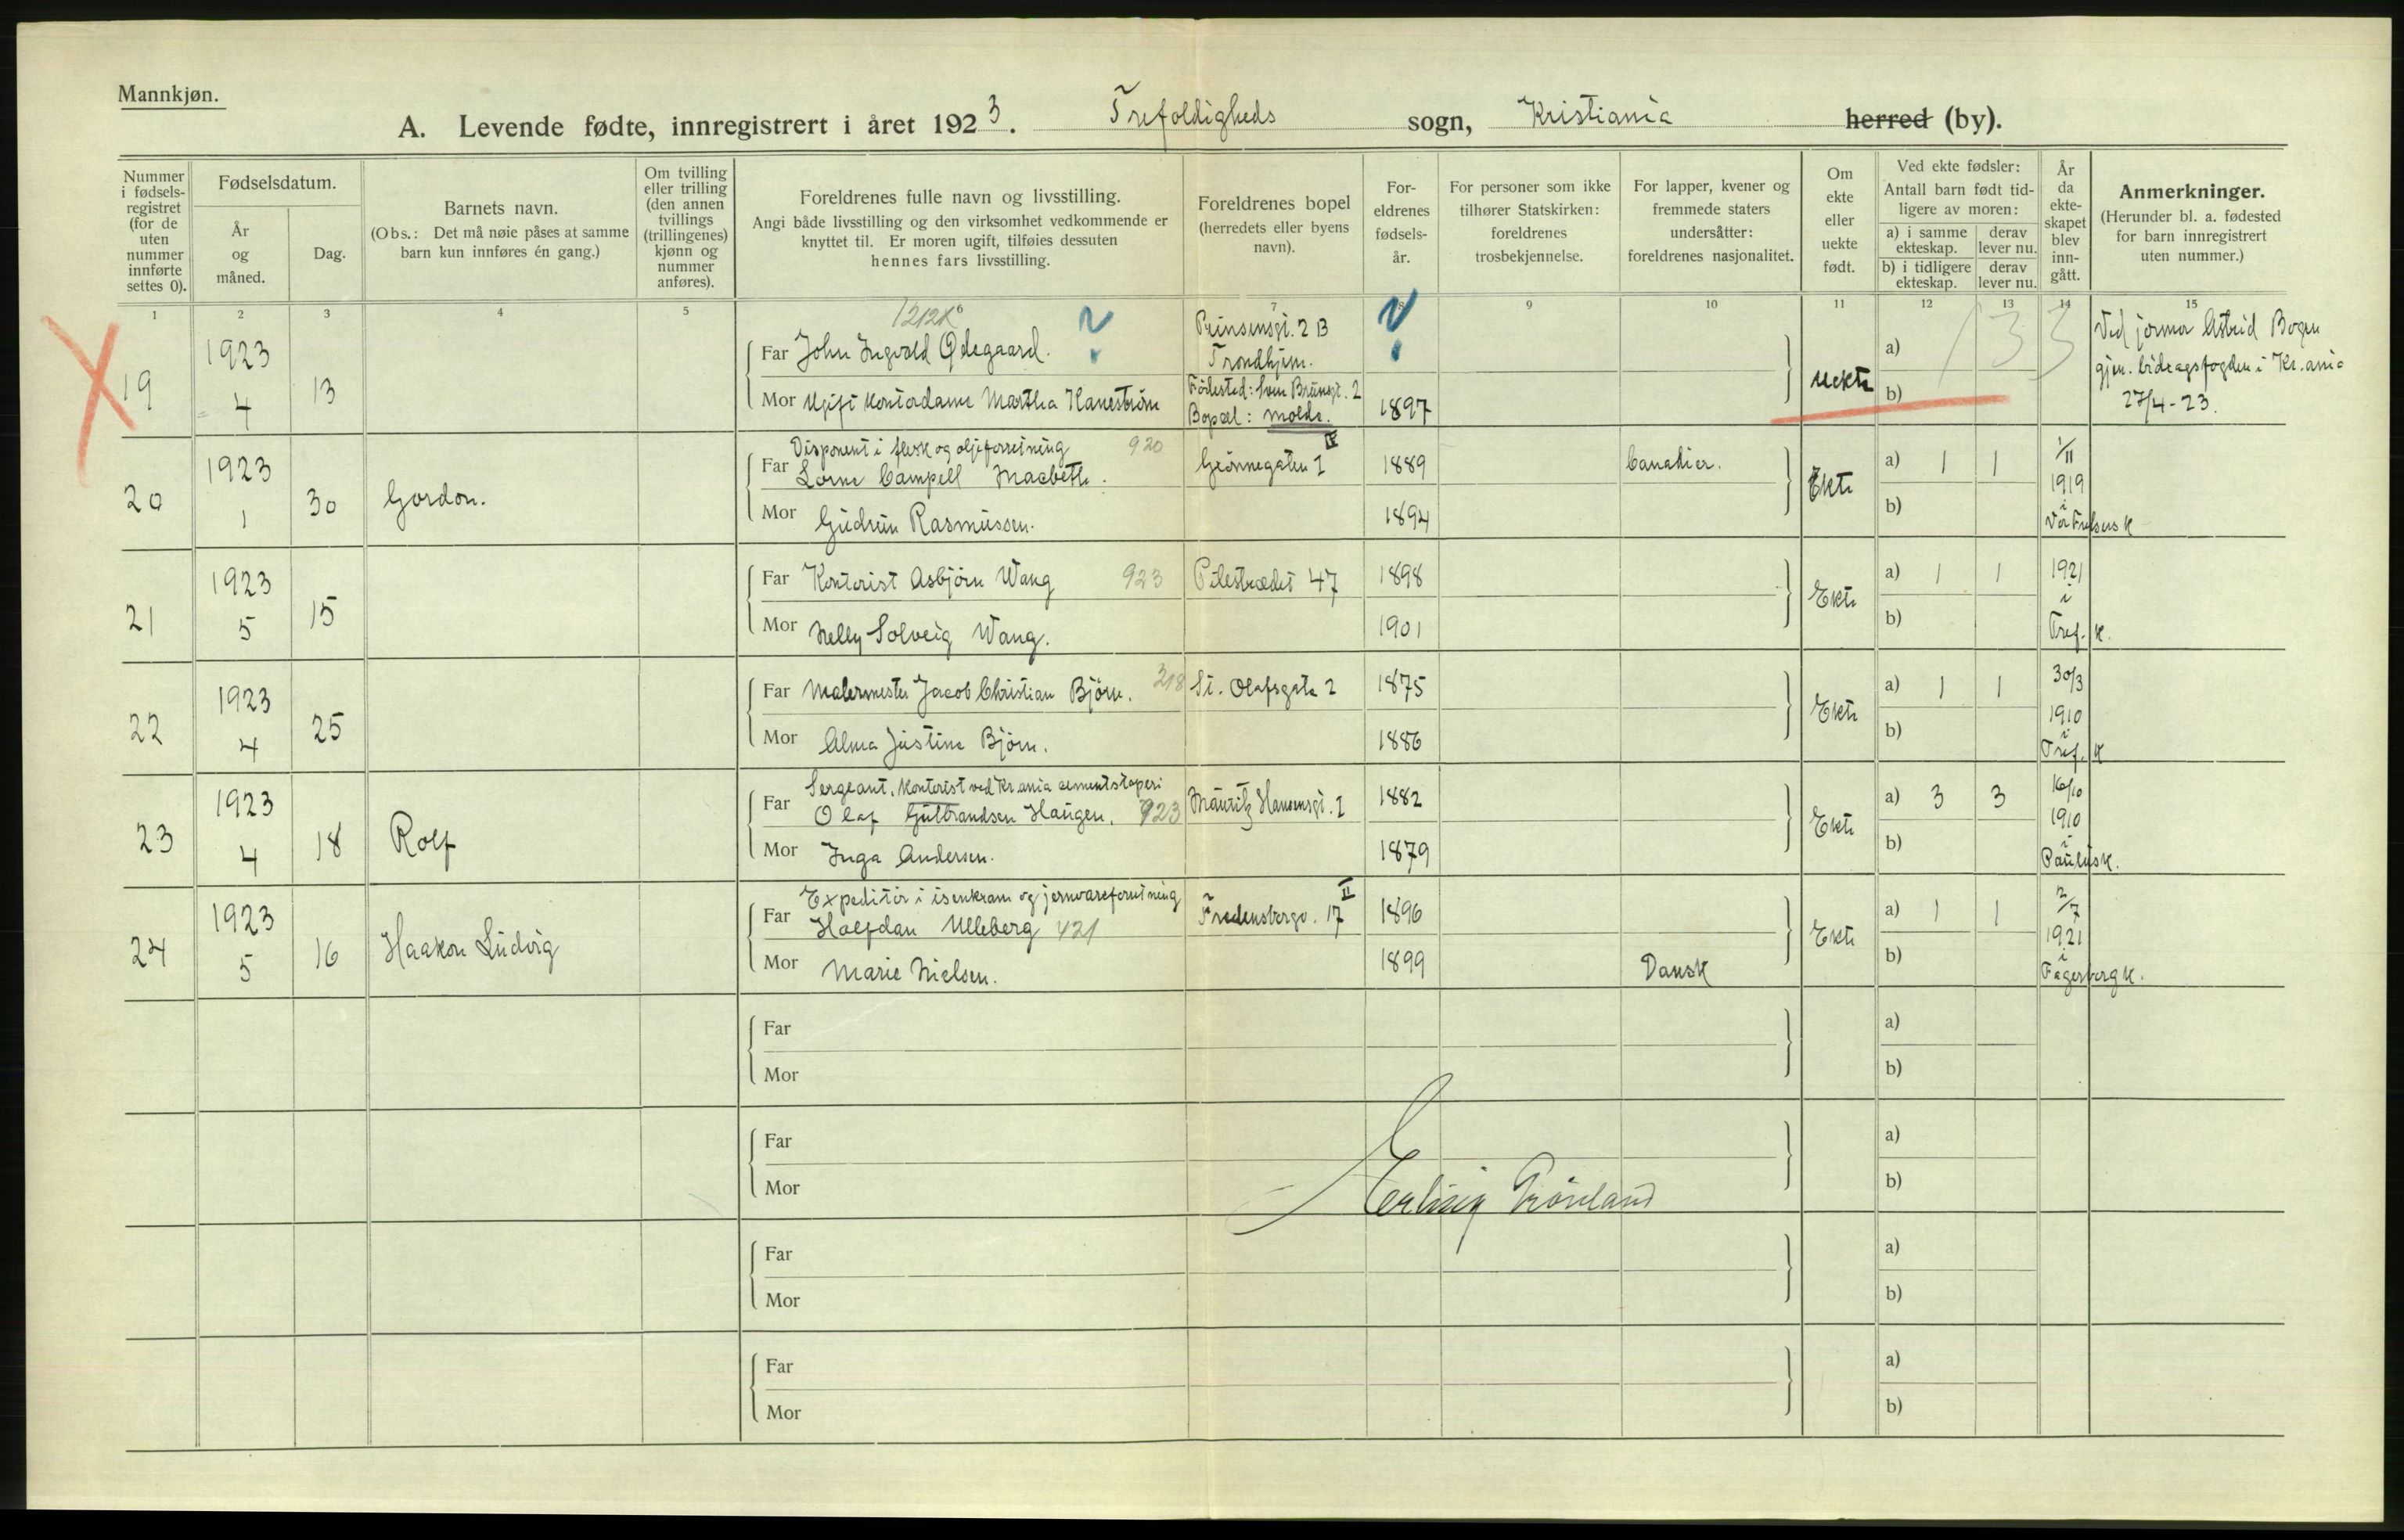 Mannkjøn.
A. Levende fødte, innregistrert i året 1923. Trefoldigheds sogn, Kristiania herred (by).
Nummer i fødsels-registret (for de uten nummer innførte settes 0).
Fødselsdatum.
År og måned.
Dag.
Barnets navn.
(Obs.: Det må nøie påses at samme barn kun innføres én gang.)
Om tvilling eller trilling (den annen tvillings (trillingenes) kjønn og nummer anføres).
Foreldrenes fulle navn og livsstilling.
Angi både livsstilling og den virksomhet vedkommende er knyttet til. Er moren ugift, tilføies dessuten hennes fars livsstilling.
Foreldrenes bopel (herredets eller byens navn).
For-eldrenes fødsels-år.
For personer som ikke tilhører Statskirken: foreldrenes trosbekjennelse.
For lapper, kvener og fremmede staters undersåtter: foreldrenes nasjonalitet.
Om ekte eller uekte født.
Ved ekte fødsler: Antall barn født tid-ligere av moren:
a) i samme ekteskap. derav lever nu.
b) i tidligere ekteskap. derav lever nu.
År da ekte-skapet blev inn-gått.
Anmerkninger.
(Herunder bl. a. fødested for barn innregistrert uten nummer.)
1 2 3 4 5 7 9 10 11 12 13 14 15
19 1923 4 13
Far John Ingvald Ødegaard. ? Prinsensgt. 2 B Trondhjem. ?
Mor Ugift kontordame Martha Hanestrøm Fødested: Sven Brunsgt. 2 Bopæl: Molde. 1897
uekte a) b) 133
Ved jormor Astrid Bogen
gjen. bidragsfogden i Kr.ania
27/4-23.
20 1923 1 30 Gordon.
Far Disponent i flesk og oljeforretning 920
Lorne Campell Macbeth. Grønnegaten 1 IV 1889 Canadier.
Mor Gudrun Rasmussen. 1894
Ekte a) 1 1 b) 1/11 1919 i Vor Frelsers k
21 1923 5 15
Far Kontorist Asbjørn Wang 923 Pilestrædet 47 1898
Mor Nelly Solveig Wang. 1901
Ekte a) 1 1 b) 1921 i Tref. k.
22 1923 4 25
Far Malermester Jacob Christian Bjørn. 218 St. Olafsgate 2 1875
Mor Alma Justine Bjørn. 1886
Ekte a) 1 1 b) 30/3 1910 i Tref. k
23 1923 4 18 Rolf
Far Sergeant, kontorist ved Kr.ania cementstøperi
Olaf Gulbrandsen Haugen. 923 Mauritz Hansensgt. 1 1882
Mor Inga Andersen. 1879
Ekte a) 3 3 b) 16/10 1910 i Paulusk.
24 1923 5 16 Haakon Ludvig
Far Expeditør i isenkram og jernvareforretning
Halfdan Ulleberg 421 Fredensborgv. 17 II 1896
Mor Marie Nielsen. 1899 Dansk
Ekte a) 1 1 b) 2/7 1921 i Fagerborg k.
Far a)
Mor b)
Far a)
Mor b)
Erling Grönland
Far a)
Mor b)
Far a)
Mor b)